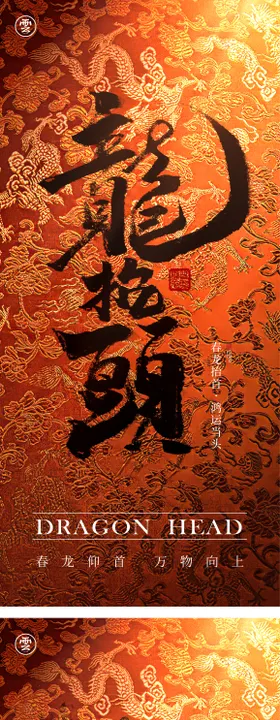 雲
龍
抬
頭
春龙抬首
鸿运当头
DRAGON HEAD
春龙仰首 万物向上
雲